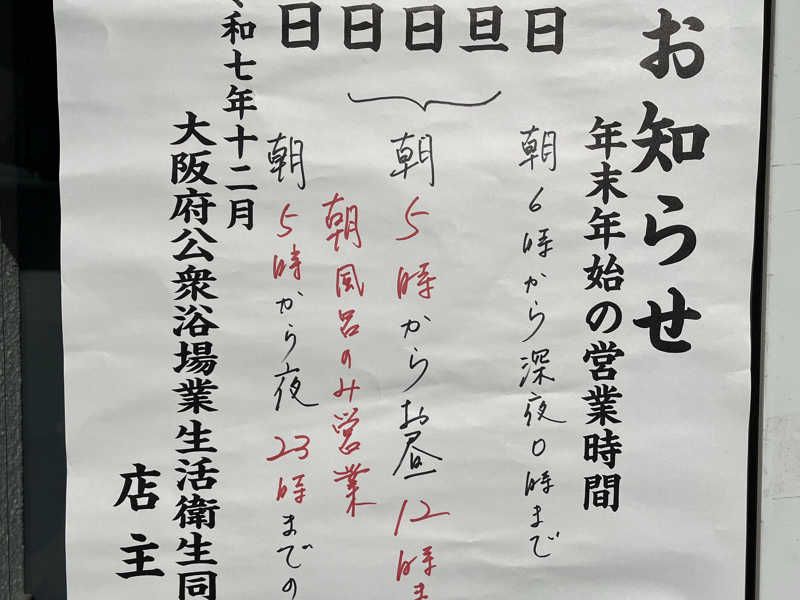 お知らせ
年末年始の営業時間
日 朝6時から深夜0時まで
旦
日 朝5時からお昼12時ま
朝風呂のみ営業
日
日 朝5時から夜23時までの
令和七年十二月
大阪府公衆浴場業生活衛生同
店主